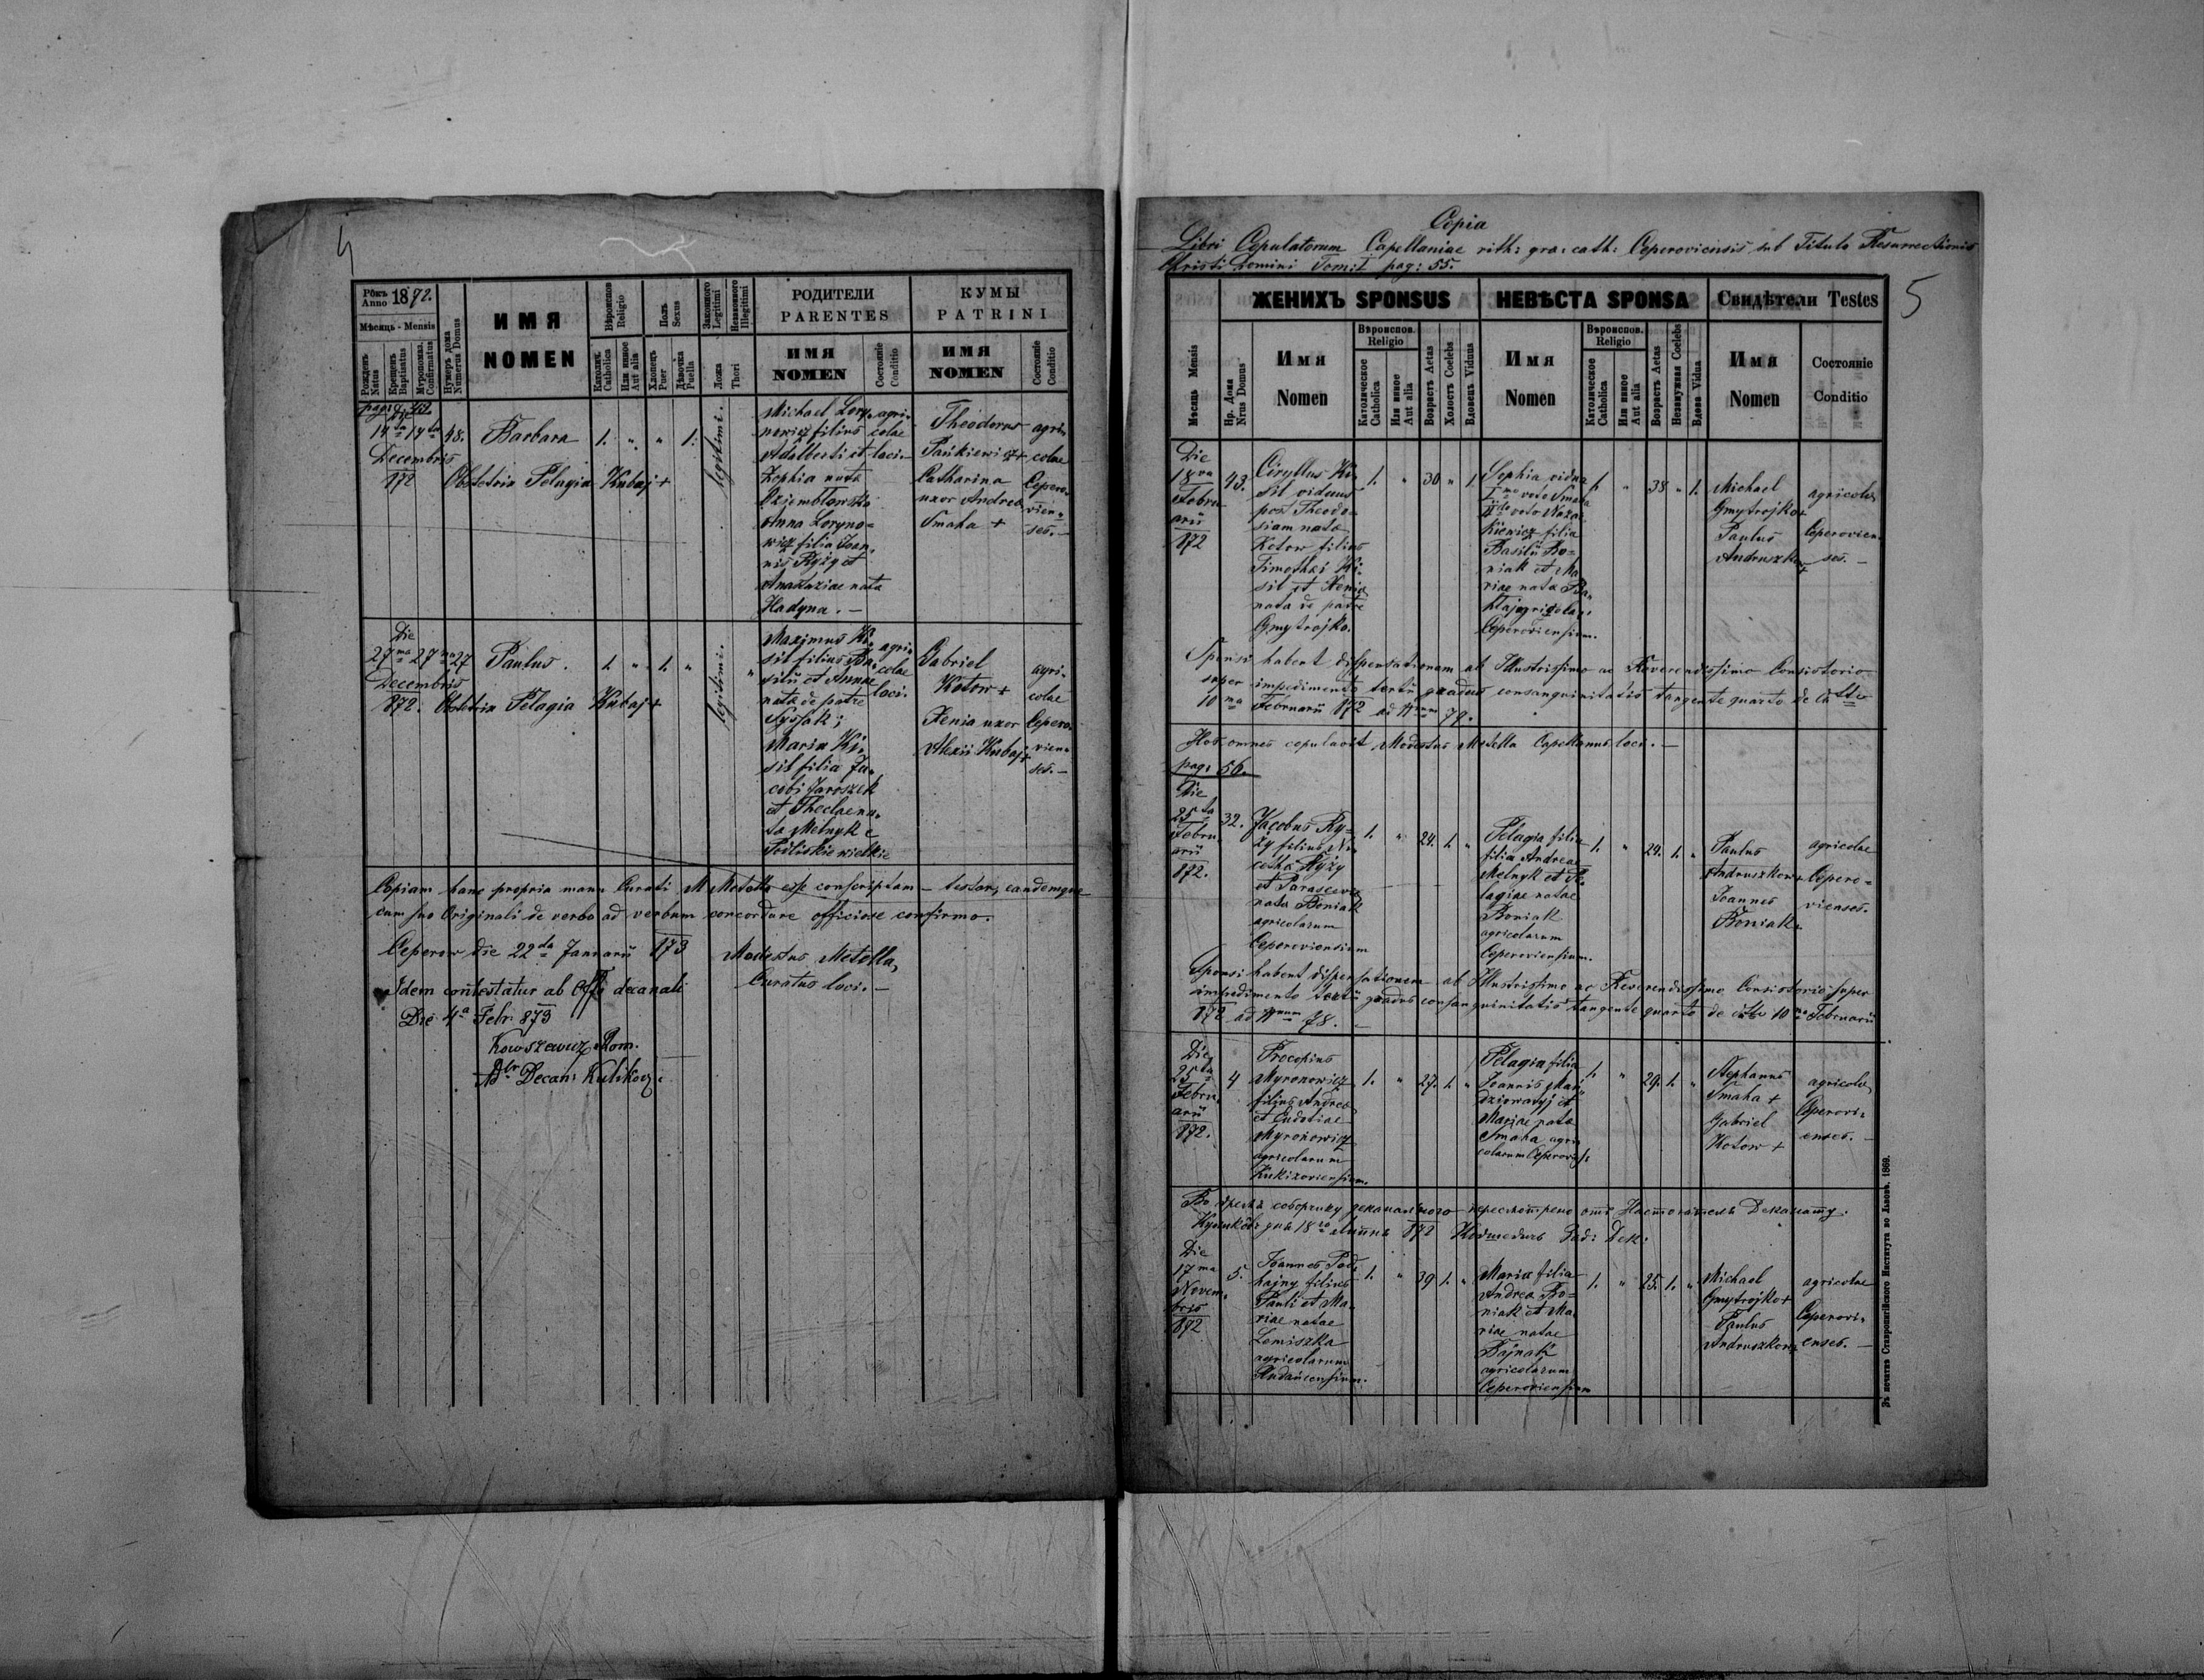 4
Рôкъ Anno 1872.
Мѣсяць - Mensis
Рожденъ Natus
Крещенъ Baptisatus
Мѵропомаз. Confirmatus
Нумеръ дома Numerus Domus
ИМЯ NOMEN
Вѣроисповѣд. Religio
Католич. Catholica
Или инное Aut alia
Полъ Sexus
Хлопець Puer
Дѣвочка Puella
Законного Legitimi
Незаконного Illegitimi
Ложа Thori
РОДИТЕЛИ PARENTES
ИМЯ NOMEN
Состояніе Conditio
КУМЫ PATRINI
ИМЯ NOMEN
Состояніе Conditio
Die
14ta 14ta 48. Barbara 1. " " 1. legitimi.
Decembris
872 Obstetrix Pelagia Kubaj +
Michael Lory-
nowicz filius
Adalberti et
Zophia nata
Anna Loryno-
wicz filia Joan-
nis Ryży et
Anastaziae nata
Hadyna. -
agri-
colae
loci.
Theodorus
Pańkiewicz +
Catharina
uxor Andreae
Smaha +
agri-
colae
Cepero-
vien-
ses. -
Die
27ma 27ma 27 Paulus. 1. " 1. " legitimi. "
Decembris
872. Obstetrix Pelagia Kubaj +
Maximus Ki-
sil filius Ba-
silii et Annae
nata de patre
Syssak;
Maria Ki-
sil filia Ja-
cobi Jaroszek
et Theclae na-
ta Melnyk e
Podliskie wielkie
agri-
colae
loci.
Gabriel
Kotow +
Xenia uxor
Alexii Kubaj +
agri-
colae
Cepero-
vien-
ses. -
Copiam hanc propria manu Curati M Metella esse conscriptam - testor, eandemque
cum suo Originali de verbo ad verbum concordare officiose confirmo.
Ceperow die 22da Januarii 873
Modestus Metella,
Curatus loci. -
Idem contestatur ab Offi decanali
Die 4a Febr. 873
Kowszewicz Rom.
Decan: Kulikov:
Copia
Libri Copulatorum Capellaniae rith: gra: cath: Ceperoviensis sub Titulo Resurrectionis
Christi Domini Tom: I pag: 55.
5
ЖЕНИХЪ SPONSUS
НЕВѢСТА SPONSA
Свидѣтели Testes
Мѣсяць Mensis
Нр. Дома Nrus Domus
Имя Nomen
Вѣроиспов. Religio
Католическое Catholica
Или инное Aut alia
Возрастъ Aetas
Холостъ Coelebs
Вдовецъ Viduus
Имя Nomen
Вѣроиспов. Religio
Католическое Catholica
Или инное Aut alia
Возрастъ Aetas
Незамужная Coelebs
Вдова Vidua
Имя Nomen
Состояніе Conditio
Die
18va
Febru-
arii
872
43.
Ciryllus Ki-
sil viduus
post Theodo-
siam nata
Kotow filius
Timothei Ki-
sil et Xenia
nata de patre
Gmytrojko.
1. " 30 " 1.
Sophia vidua
Imo voto Smaha
IIdo voto
filia
Basilii Bo-
niak et Ma-
riae nata
agricolar.
Ceperoviensium.
1. " 38 " 1.
Michael
Gmytrojko +
Paulus
Andruszkow +
agricolae
Ceperovien-
ses. -
Sponsi habent dispensationem ab Illustrissimo ac Reverendissimo Consistorio
super impedimento tertii gradus consanguinitatis tangente quarto de dtto
10ma Februarii 872 ad Nrum 79.
Hos omnes copulavit Modestus Metella Capellanus loci. -
pag: 56.
Die
25ta
Febru-
arii
872.
32.
Jacobus Ry-
ży filius Ni-
cetha Ryży
et Parascevia
nata Boniak
agricolarum
Ceperoviensium
1. " 24. 1. "
Pelagia filia
filia Andreae
Melnyk et Pe-
lagiae natae
Boniak
agricolarum
Ceperoviensium.
1. " 24. 1. "
Paulus
Andruszkow +
Joannes
Boniak +
agricolae
Cepero-
vienses.
Sponsi habent dispensationem ab Illustrissimo ac Reverendissimo Consistorio super
impedimento tertii gradus consanguinitatis tangente quarto de dtto 10ma Februarii
872 ad Nrum 78. -
Die
25ta
Febru-
arii
872.
4
Procopius
Myronowicz
filius Andreae
et Eudotiae
Myronowicz
agricolarum
Kukizoviensium.
1. " 27. 1. "
Pelagia filia
Joannis
et
Mariae nata
Smaha agri-
colarum Ceperovis:
1. " 29. 1. "
Stephanus
Smaha +
Gabriel
Kotow +
agricolae
Ceperovi-
enses. -
Во время соборчику деканального пересмотрено отъ Настоятеля Деканату.
Куликôвъ дня 18го Липня 872 Ковшевичь
Die
17ma
Novem-
bris
872
5.
Joannes Pod-
hajny filius
Pauli et Ma-
riae natae
Lemiszka
agricolarum
Rudańcensium.
1. " 39 1. "
Maria filia
Andrea Bo-
niak et Ma-
riae natae
Bajnak
agricolarum
Ceperoviensium
1. " 25. 1. "
Michael
Gmytrojko +
Paulus
Andruszkow +
agricolae
Ceperovi-
enses. -
Зъ печатнѣ Ставропигійского Института во Львовѣ. 1869.